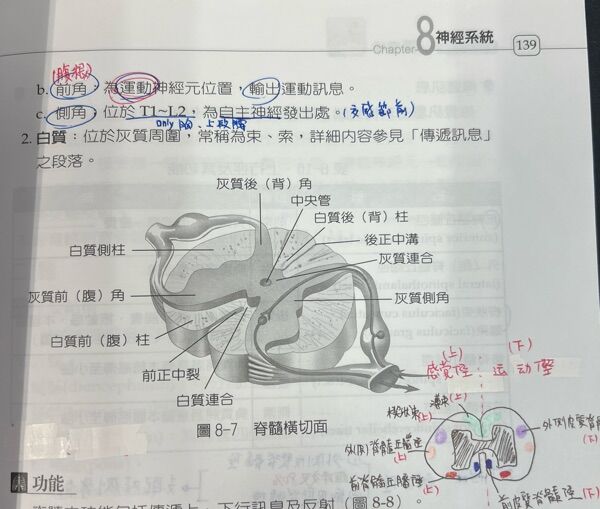 Chapter 8 神經系統 139
(腹根)
b. 前角：為運動神經元位置，輸出運動訊息。
c. 側角：位於 T1~L2，為自主神經發出處。(交感節前)
only 胸、上段腰
2. 白質：位於灰質周圍，常稱為束、索，詳細內容參見「傳遞訊息」
之段落。
灰質後（背）角
中央管
白質後（背）柱
後正中溝
白質側柱
灰質連合
灰質前（腹）角
灰質側角
白質前（腹）柱
前正中裂
白質連合
圖 8-7 脊髓橫切面
(上) (下)
感覺徑 : 运动徑
薄束(上)
(上)
外側皮質脊
(下)
外側脊髓丘腦徑
(上)
前脊髓丘腦徑
(上)
前皮質脊髓徑
(下)
功能
下行訊息及反射（圖 8-8）。